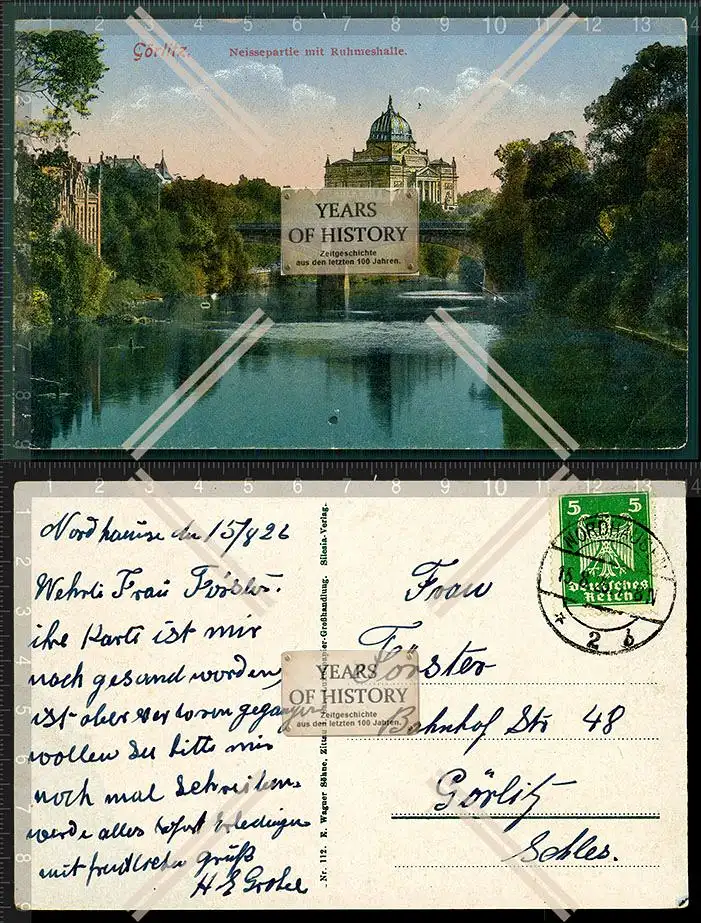 Görlitz.
Neissepartie mit Ruhmeshalle.
YEARS
OF HISTORY
Zeitgeschichte
aus den letzten 100 Jahren.
Nordhause den 15/8 26
Wehrte Frau Förster.
ihre Karte ist mir
nach gesand worden
ist aber verloren gegangen
wollen Sie bitte mir
noch mal Schreiben.
werde alles sofort Erledingen
mit freudlichen Grüß
H E Grobe
Nr. 112. E. Wagner Söhne, Zittau
Papier-Großhandlung. Silesia-Verlag.
YEARS
OF HISTORY
Zeitgeschichte
aus den letzten 100 Jahren.
5 5
Deutsches
Reich
NORDHAUSEN
* 2 b
Frau
Förster
Bahnhof Str 48
Görlitz
Schles.